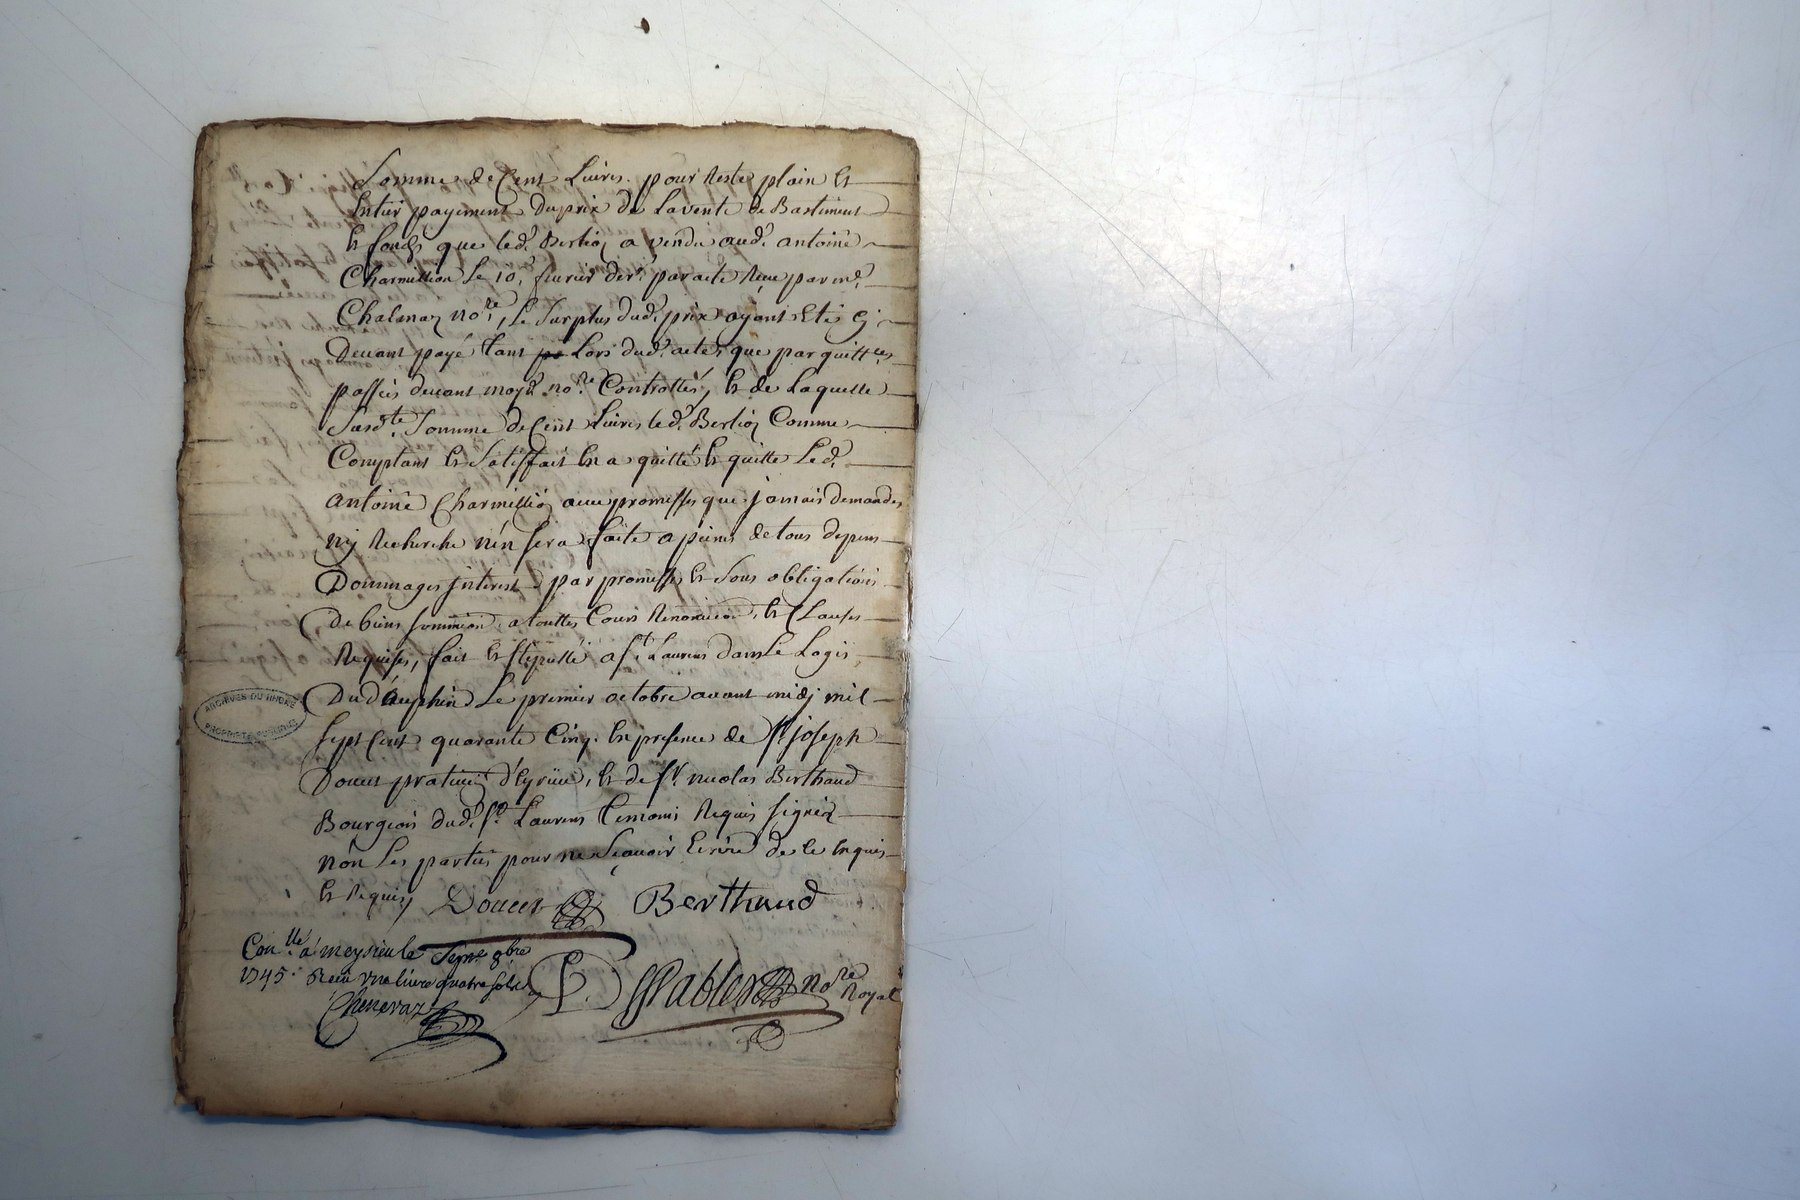 Somme de Cent Livres pour Reste plain Et
Entier payement du prix de La vente de Bastiment
Et fonds que led. Berlioz a vendu aud. antoine
Charmillion Le 10e fevrier der. par acte Reçu par me.
Chalman nore, Le Surplus dud. prix ayant Eté Cj
Devant payé tant Lors dud. acte que par quittces
passées devant moyd. nore Controttés, Et de Laquelle
Susdte. Somme de Cent Livres led. Berlioz Comme
Comptant Et Satisfait En a quitté Et quitte Led.
antoine Charmillioz avec promesses que jamais demandes
nj Recherche n'en sera faite a peines de tous depens
Dommages interest par promesses Et Sous obligations
De biens soumission a touttes Cours Renonciation, Et Clauses
Requises, fait Et stipullé a St. Laurens dans Le Logis
Du Dauphin Le premier octobre avant midj mil
sept Cent quarante Cinq. En presence de Sr joseph
Doucet praticien d'heyrieu, Et de Sr. nicolas Berthaud
Bourgeois dud. St. Laurens temoins Requis signés
non Les parties pour ne Sçavoir Ecrire de ce Enquis
Et Requis Doucet Berthaud
Conlle. a meysieu le 8bre
1745. Reçu une livre quatre sols
Chenevaz
nore Royal
ARCHIVES DU RHONE
PROPRIETE PUBLIQUE